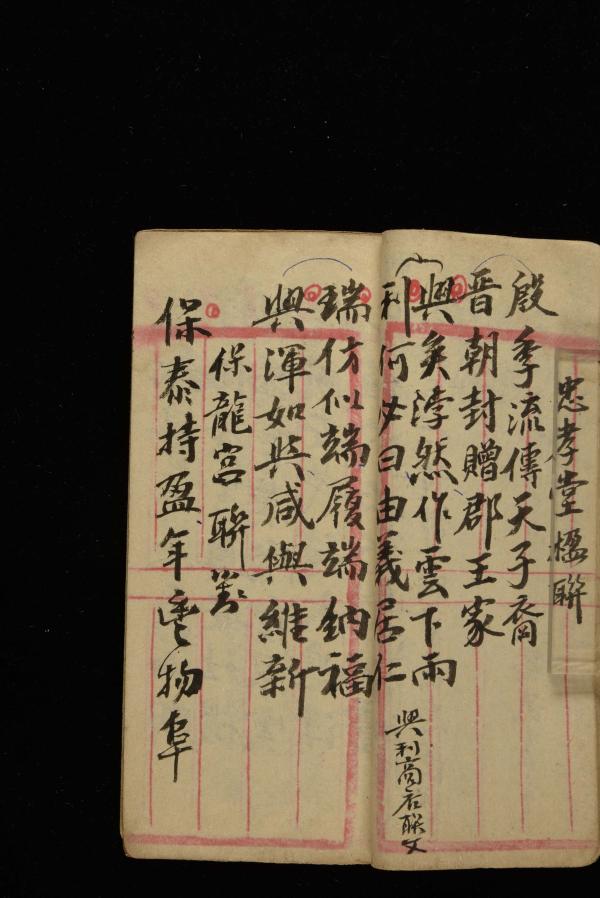 忠孝堂楹聯
殷季流傳天子裔
晉朝封贈郡王家
興矣浡然作雲下雨
利何必曰由義居仁
興利商店联文
瑞仿似端履端納福
興渾如與咸與維新
保龍宮聯對
保泰持盈年豐物阜